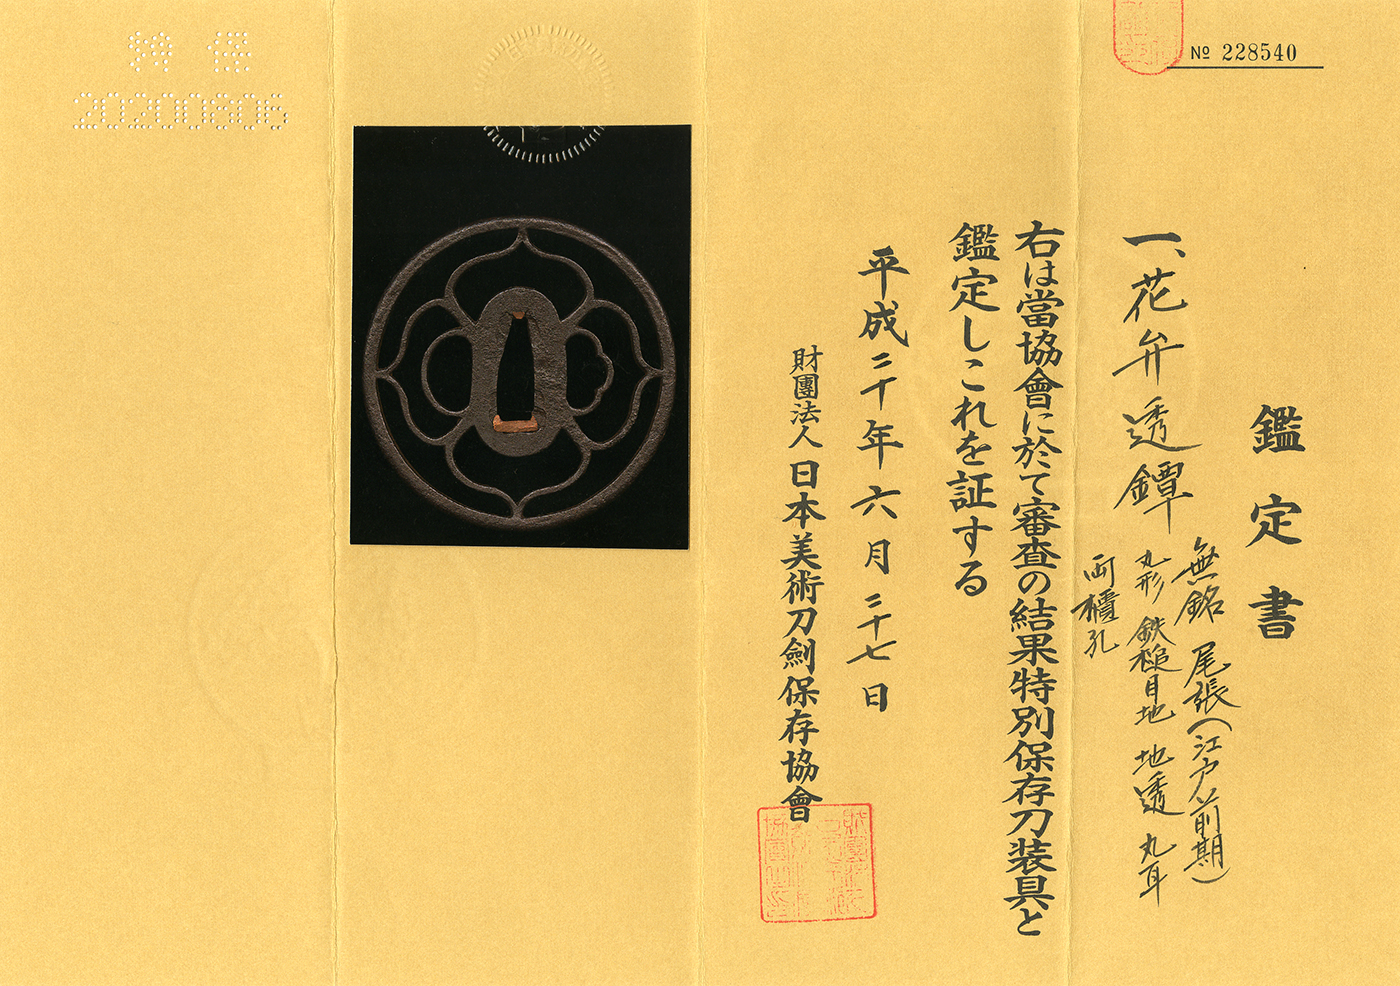 № 228540
鑑定書
一、花弁透鐔
無銘 尾張(江戸前期)
丸形 鉄槌目地 地透 丸耳
両櫃孔
右は當協會に於て審査の結果特別保存刀装具と
鑑定しこれを証する
平成二十年六月二十七日
財團法人日本美術刀劍保存協會
20200606